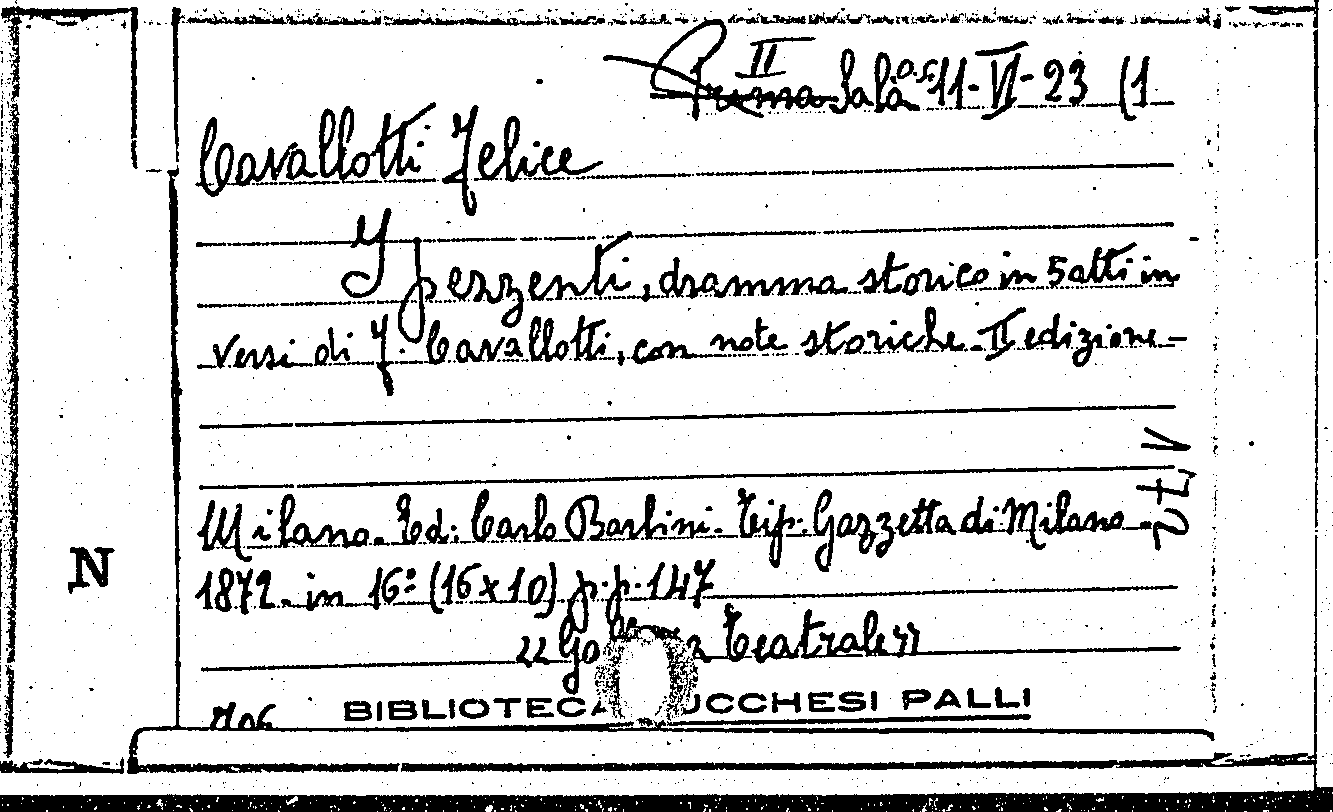 II
Prima Sala 11-VI-23 (1
Cavallotti Felice
I pezzenti, dramma storico in 5 atti in
versi di F. Cavallotti, con note storiche II edizione -
Milano. Ed: Carlo Barbini. Tip: Gazzetta di Milano -
1872. in 16º (16x10) p.p. 147
Teatrale "
BIBLIOTECA UCCHESI PALLI
N